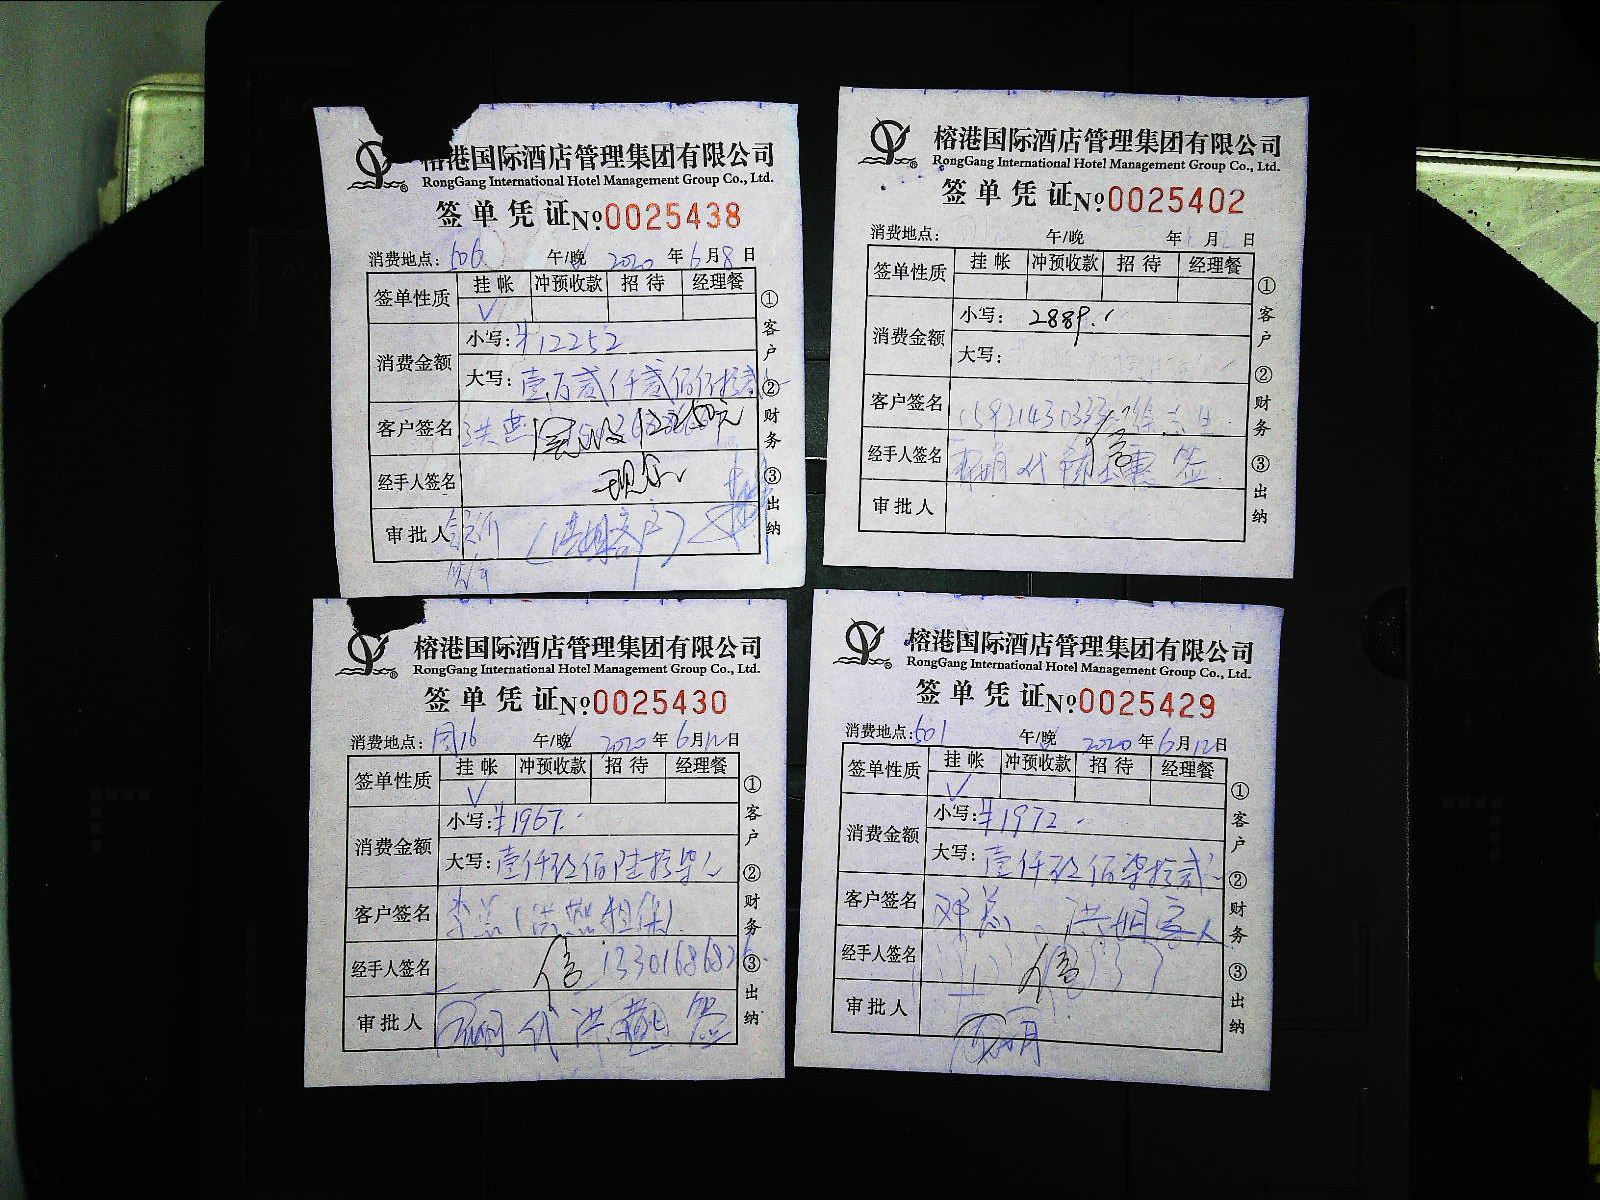 榕港国际酒店管理集团有限公司
RongGang International Hotel Management Group Co., Ltd.
签单凭证 №0025438
消费地点: 606 午/晚 2020 年 6 月 8 日
签单性质 挂帐 冲预收款 招待 经理餐
✓
消费金额 小写: ¥12252
大写: 壹万贰仟贰佰伍拾贰
客户签名 洪燕 12250元
经手人签名 现金
审批人 (洪姐客户)
①客户 ②财务 ③出纳
榕港国际酒店管理集团有限公司
RongGang International Hotel Management Group Co., Ltd.
签单凭证 №0025402
消费地点: 午/晚 年 6 月 日
签单性质 挂帐 冲预收款 招待 经理餐
消费金额 小写: 2889.
大写:
客户签名 15921430333 徐
经手人签名 代 签
审批人
①客户 ②财务 ③出纳
榕港国际酒店管理集团有限公司
RongGang International Hotel Management Group Co., Ltd.
签单凭证 №0025430
消费地点: 16 午/晚 2020 年 6 月 12 日
签单性质 挂帐 冲预收款 招待 经理餐
✓
消费金额 小写: ¥1967.
大写: 壹仟玖佰陆拾柒
客户签名 李总(洪燕担保)
经手人签名 信 1330168682
审批人 明代洪燕签
①客户 ②财务 ③出纳
榕港国际酒店管理集团有限公司
RongGang International Hotel Management Group Co., Ltd.
签单凭证 №0025429
消费地点: 601 午/晚 2020 年 6 月 12 日
签单性质 挂帐 冲预收款 招待 经理餐
✓
消费金额 小写: ¥1972.
大写: 壹仟玖佰柒拾贰
客户签名 邓总 洪姐客人
经手人签名 信
审批人 明
①客户 ②财务 ③出纳